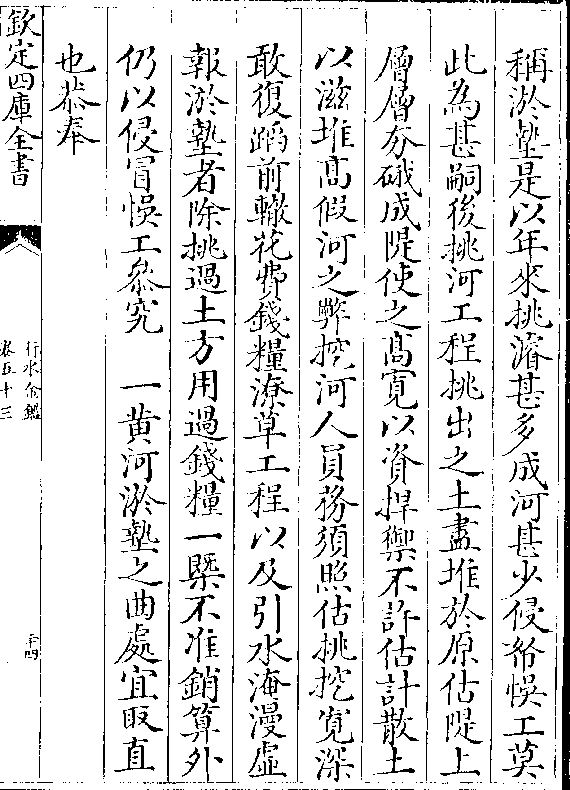 稱淤墊是以年來挑濬甚多成河甚少侵帑悞工莫
此為甚嗣後挑河工程挑出之土盡堆於原估隄上
層層夯硪成隄使之髙寛以資捍禦不許估計散土
以滋堆髙假河之弊挖河人員務須照估挑挖寛深
敢復蹈前轍花費錢糧潦草工程以及引水淹漫虛
報淤墊者除挑過土方用過錢糧一槩不准銷算外
仍以侵冒悞工叅究　一黄河淤墊之曲處宜取直
也恭奉
欽定四庫全書
行水金鑑
卷五十三
二十四